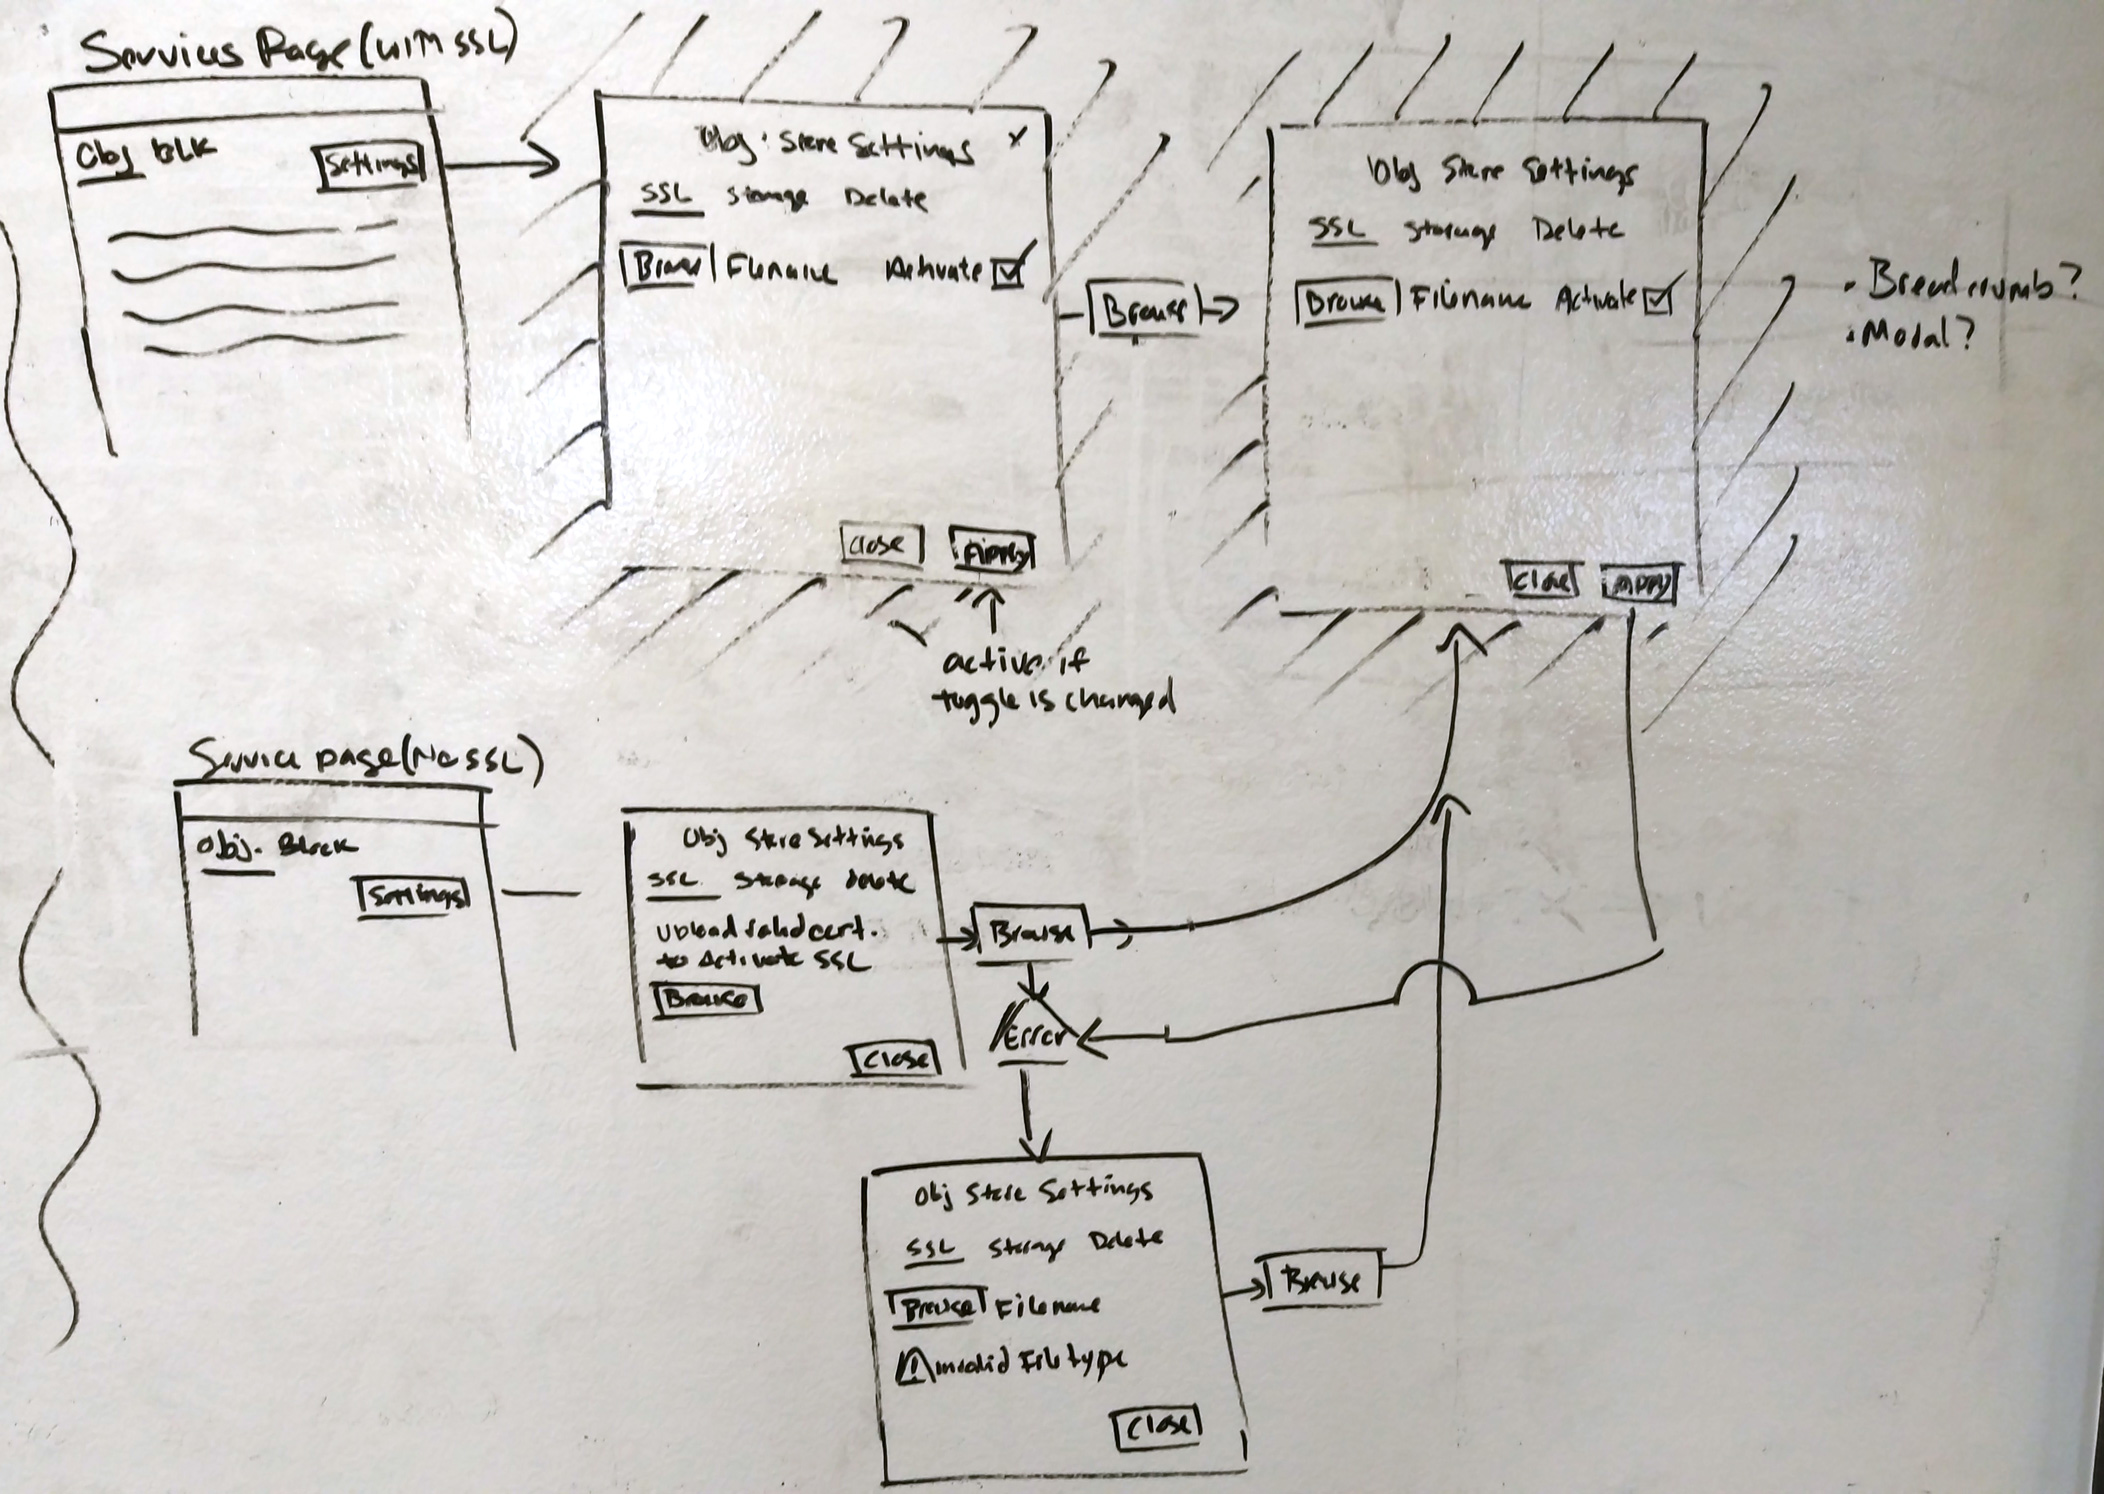 Services Page (with SSL)
Obj BLK
Settings
Obj. Store Settings X
SSL Storage Delete
Browse Filename Activate
Close Apply
active if
toggle is changed
Browse
Obj Store Settings
SSL Storage Delete
Browse Filename Activate
Close Apply
• Breadcrumb?
• Modal?
Service page (No SSL)
Obj. Block
Settings
Obj Store Settings
SSL Storage Delete
Upload valid cert.
to Activate SSL
Browse
Close
Browse
Error
Obj Store Settings
SSL Storage Delete
Browse Filename
! invalid File type
Close
Browse